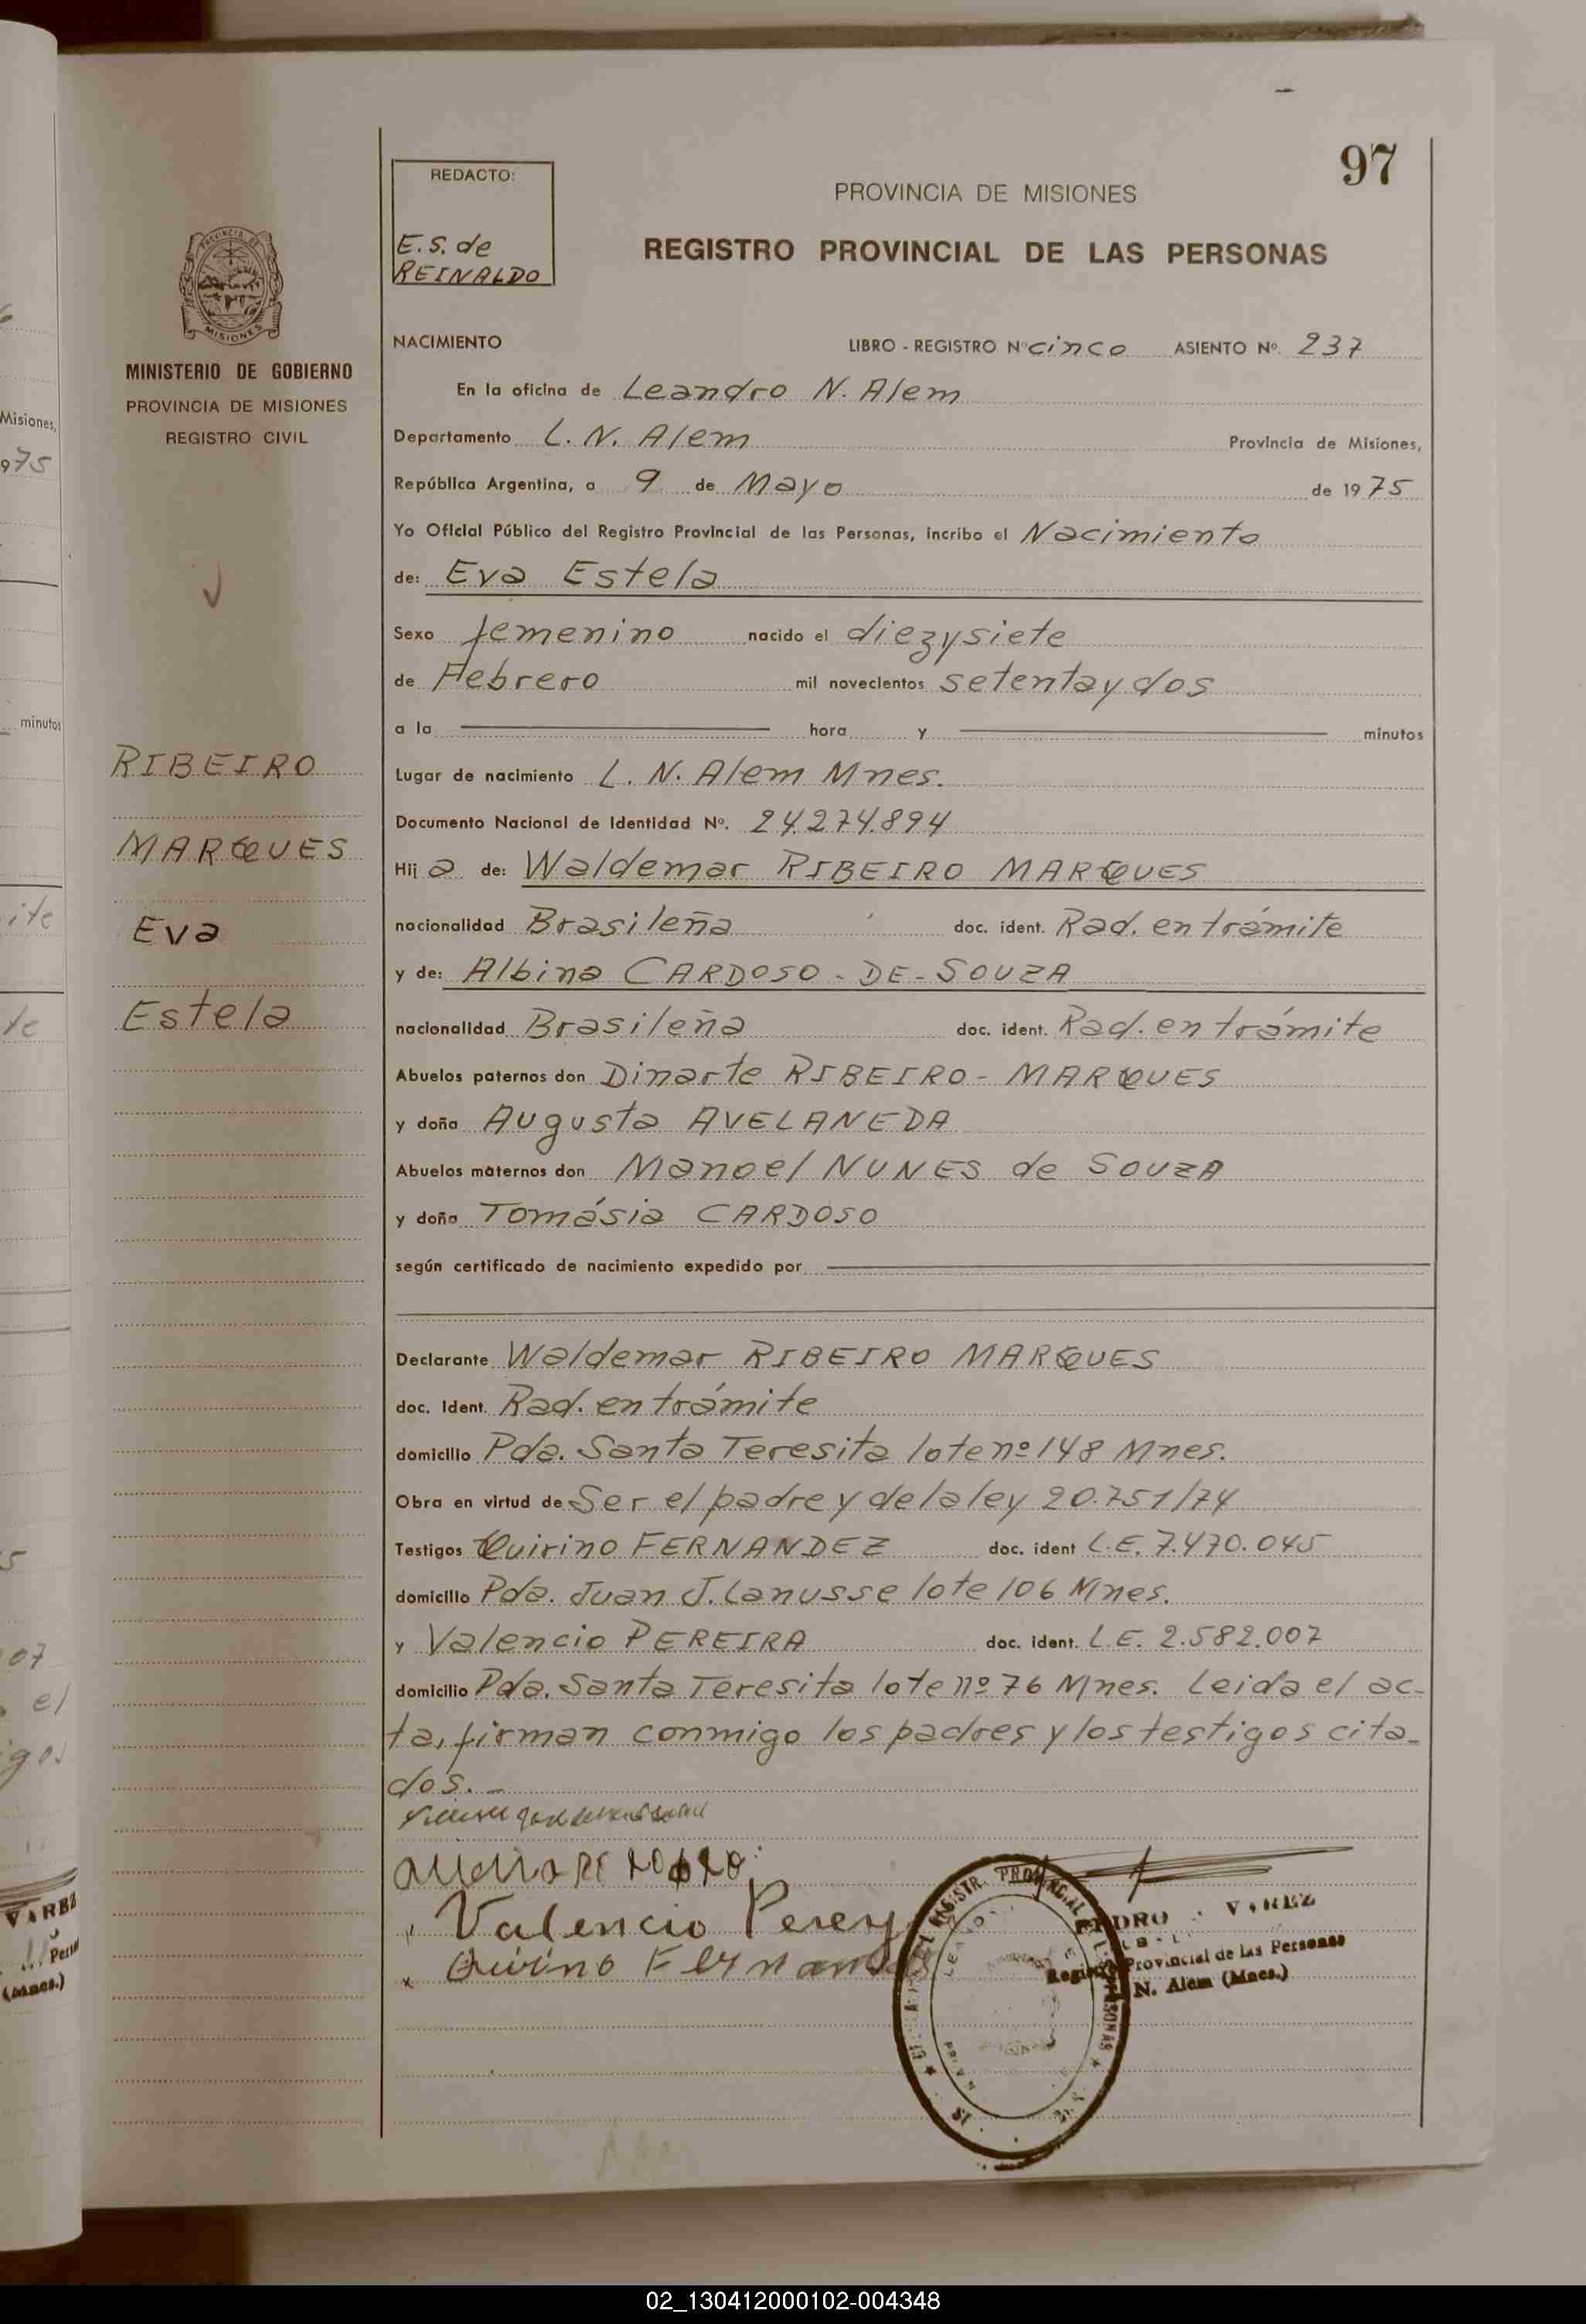 97
REDACTO:
E.S. de
REINALDO
PROVINCIA DE MISIONES
REGISTRO PROVINCIAL DE LAS PERSONAS
MISIONES
MINISTERIO DE GOBIERNO
PROVINCIA DE MISIONES
REGISTRO CIVIL
RIBEIRO
MARQUES
Eva
Estela
NACIMIENTO LIBRO - REGISTRO Nº cinco ASIENTO Nº. 237
En la oficina de Leandro N. Alem
Departamento L. N. Alem Provincia de Misiones,
República Argentina, a 9 de Mayo de 1975
Yo Oficial Público del Registro Provincial de las Personas, incribo el Nacimiento
de: Eva Estela
Sexo femenino nacido el diezysiete
de Febrero mil novecientos setentaydos
a la hora y minutos
Lugar de nacimiento L. N. Alem Mnes.
Documento Nacional de Identidad Nº. 24.274.894
Hij a de: Waldemar RIBEIRO MARQUES
nacionalidad Brasileña doc. ident. Rad. en trámite
y de: Albina CARDOSO-DE-SOUZA
nacionalidad Brasileña doc. ident. Rad. en trámite
Abuelos paternos don Dinarte RIBEIRO-MARQUES
y doña Augusta AVELANEDA
Abuelos maternos don Manoel NUNES de SOUZA
y doña Tomásia CARDOSO
según certificado de nacimiento expedido por
Declarante Waldemar RIBEIRO MARQUES
doc. Ident. Rad. en trámite
domicilio Pda. Santa Teresita lote nº 148 Mnes.
Obra en virtud de Ser el padre y de la ley 20.751/74
Testigos Quirino FERNANDEZ doc. ident L.E. 7.470.045
domicilio Pda. Juan J. Lanusse lote 106 Mnes.
y Valencio PEREIRA doc. ident. L.E. 2.582.007
domicilio Pda. Santa Teresita lote nº 76 Mnes. Leida el ac-
ta, firman conmigo los padres y los testigos cita-
dos.-
Valencio Perey
Quirino Fernan
Registro Provincial de las Personas
N. Alem (Mnes.)
02_130412000102-004348